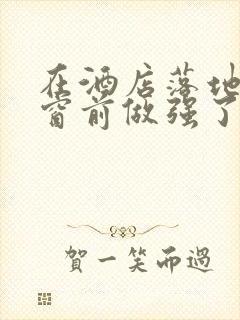 在酒店落地
窗前做强了
賀一笑而過